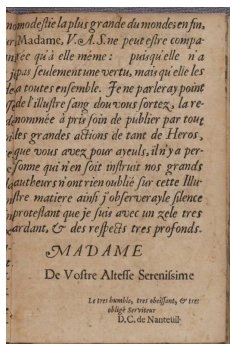 modestie la plus grande du monde: enfin,
Madame, V. A. S. ne peut estre compa-
rée qu'à elle méme : puisqu'elle n'a
pas seulement une vertu, mais qu'elle les
a toutes ensemble. Je ne parleray point
de l'illustre sang dou vous sortez, la re-
nommée a pris soin de publier par tout
les grandes actions de tant de Heros,
que vous avez pour ayeuls, il n'y a per-
sonne qui n'en soit instruit nos grands
autheurs n'ont rien oublié sur cette Illu-
stre matiere ainsi j'observeray le silence
protestant que je suis avec un zele tres
ardant, & des respects tres profonds.
MADAME
De Vostre Altesse Serenissime
Le tres humble, tres obeissant, & tres
obligé Serviteur
D. C. de Nanteüil